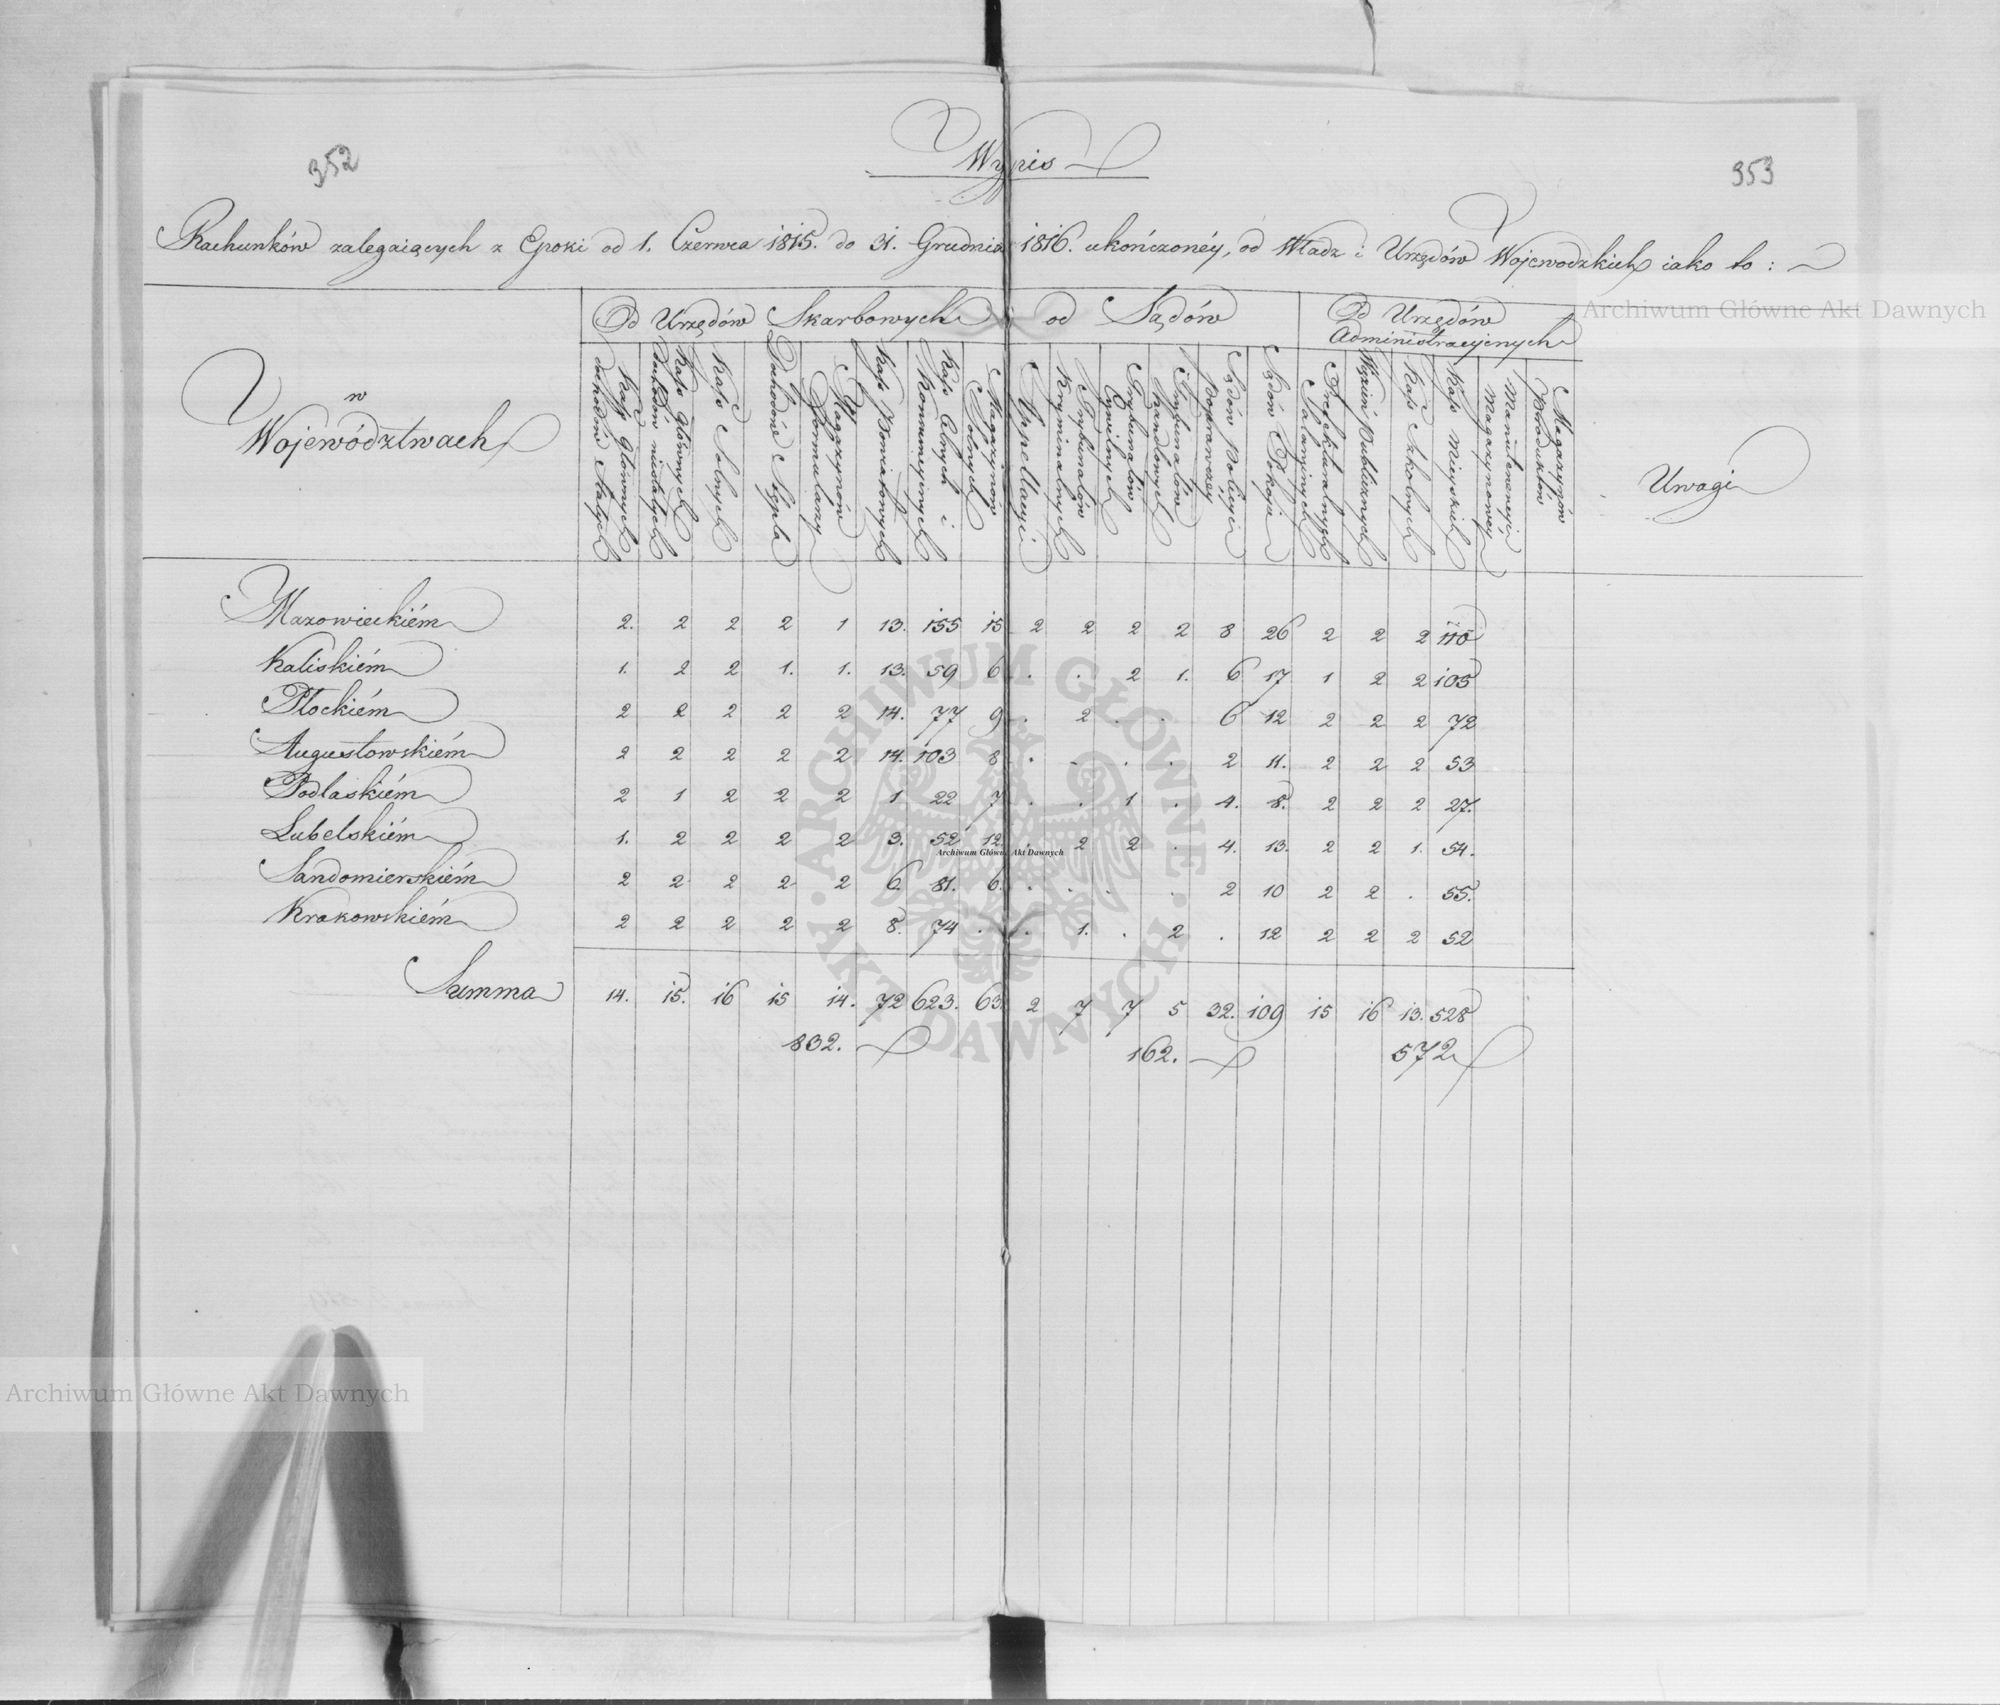 352
Wypis
353
Rachunków zalegaiących z Epoki od 1. Czerwca 1815. do 31. Grudnia 1816. ukończonéy, od Władz i Urzędów Wojewodzkich iako to:
Od Urzędów Skarbowych od Sądów Od Urzędów
Administracyjnych
w
Województwach
Kass Głównych
dochodów stałych
Kass Głównych
dochodów niestałych
Kass Solnych
Dochodów Stępla
Magazynów
Formularzy
Kass Powiatowych
Kass Celnych i
Konsumcyinych
Magazynów
Solnych
Appellacyi
Kryminalnych
Trybunałów
Cywilnych
Trybunałów
Handlowych
Sądów Policyi
Poprawczéy
Sądów Pokoju
Prefekturalnych
Więzień Publicznych
Kass Szkolnych
Kass Mieyskich
Magazynowey
Magazynów
Produktów
Uwagi
Mazowieckiém 2. 2 2 2 1 13. 155 15 2 2 2 2 8 26 2 2 2 110
Kaliskiém 1. 2 2 1. 1. 13. 59 6 . . 2 1. 6 17 1 2 2 105
Płockiém 2 2 2 2 2 14. 77 9 . 2 . . 6 12 2 2 2 72
Augustowskiém 2 2 2 2 2 14. 103 8 . . . . 2 11. 2 2 2 53
Podlaskiém 2 1 2 2 2 1 22 7 . . 1 . 4. 8. 2 2 2 27.
Lubelskiém 1. 2 2 2 2 3. 52 12. . 2 2 . 4. 13. 2 2 1. 54.
Sandomierskiém 2 2 2 2 2 6. 81. 6. . . . . 2 10 2 2 . 55.
Krakowskiém 2 2 2 2 2 8. 74 . . 1. . 2 . 12 2 2 2 52
Summa 14. 15. 16 15 14. 72 623. 63. 2 7 7 5 32. 109 15 16 13. 528
832. 162. 572
Archiwum Główne Akt Dawnych
Archiwum Główne Akt Dawnych
Archiwum Główne Akt Dawnych
ARCHIWUM GŁÓWNE
AKT DAWNYCH